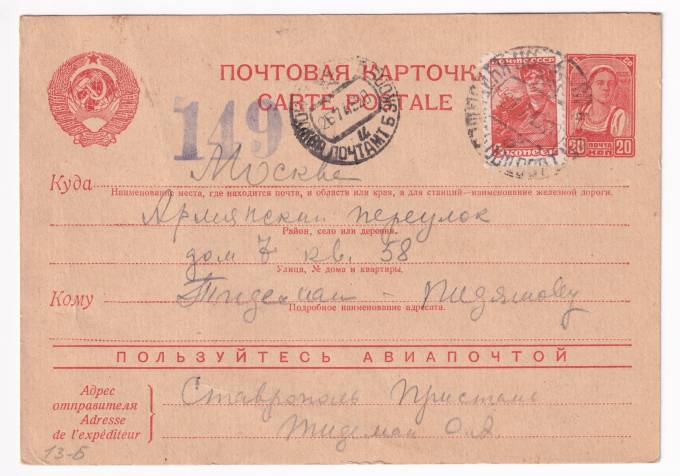 ПОЧТОВАЯ КАРТОЧКА
CARTE POSTALE
149
ПОЧТА СССР
КОПЕЕК
20 ПОЧТА КОП 20
Москва
Куда
Наименование места, где находится почта, и области или края, а для станций—наименование железной дороги.
Армянский переулок
Район, село или деревня.
дом 7 кв. 58
Улица, № дома и квартиры.
Кому Тидеман -
Подробное наименование адресата.
ПОЛЬЗУЙТЕСЬ АВИАПОЧТОЙ
Адрес
отправителя
Adresse
de l'expéditeur
Ставрополь Пристань
Тидеман О.
13-Б